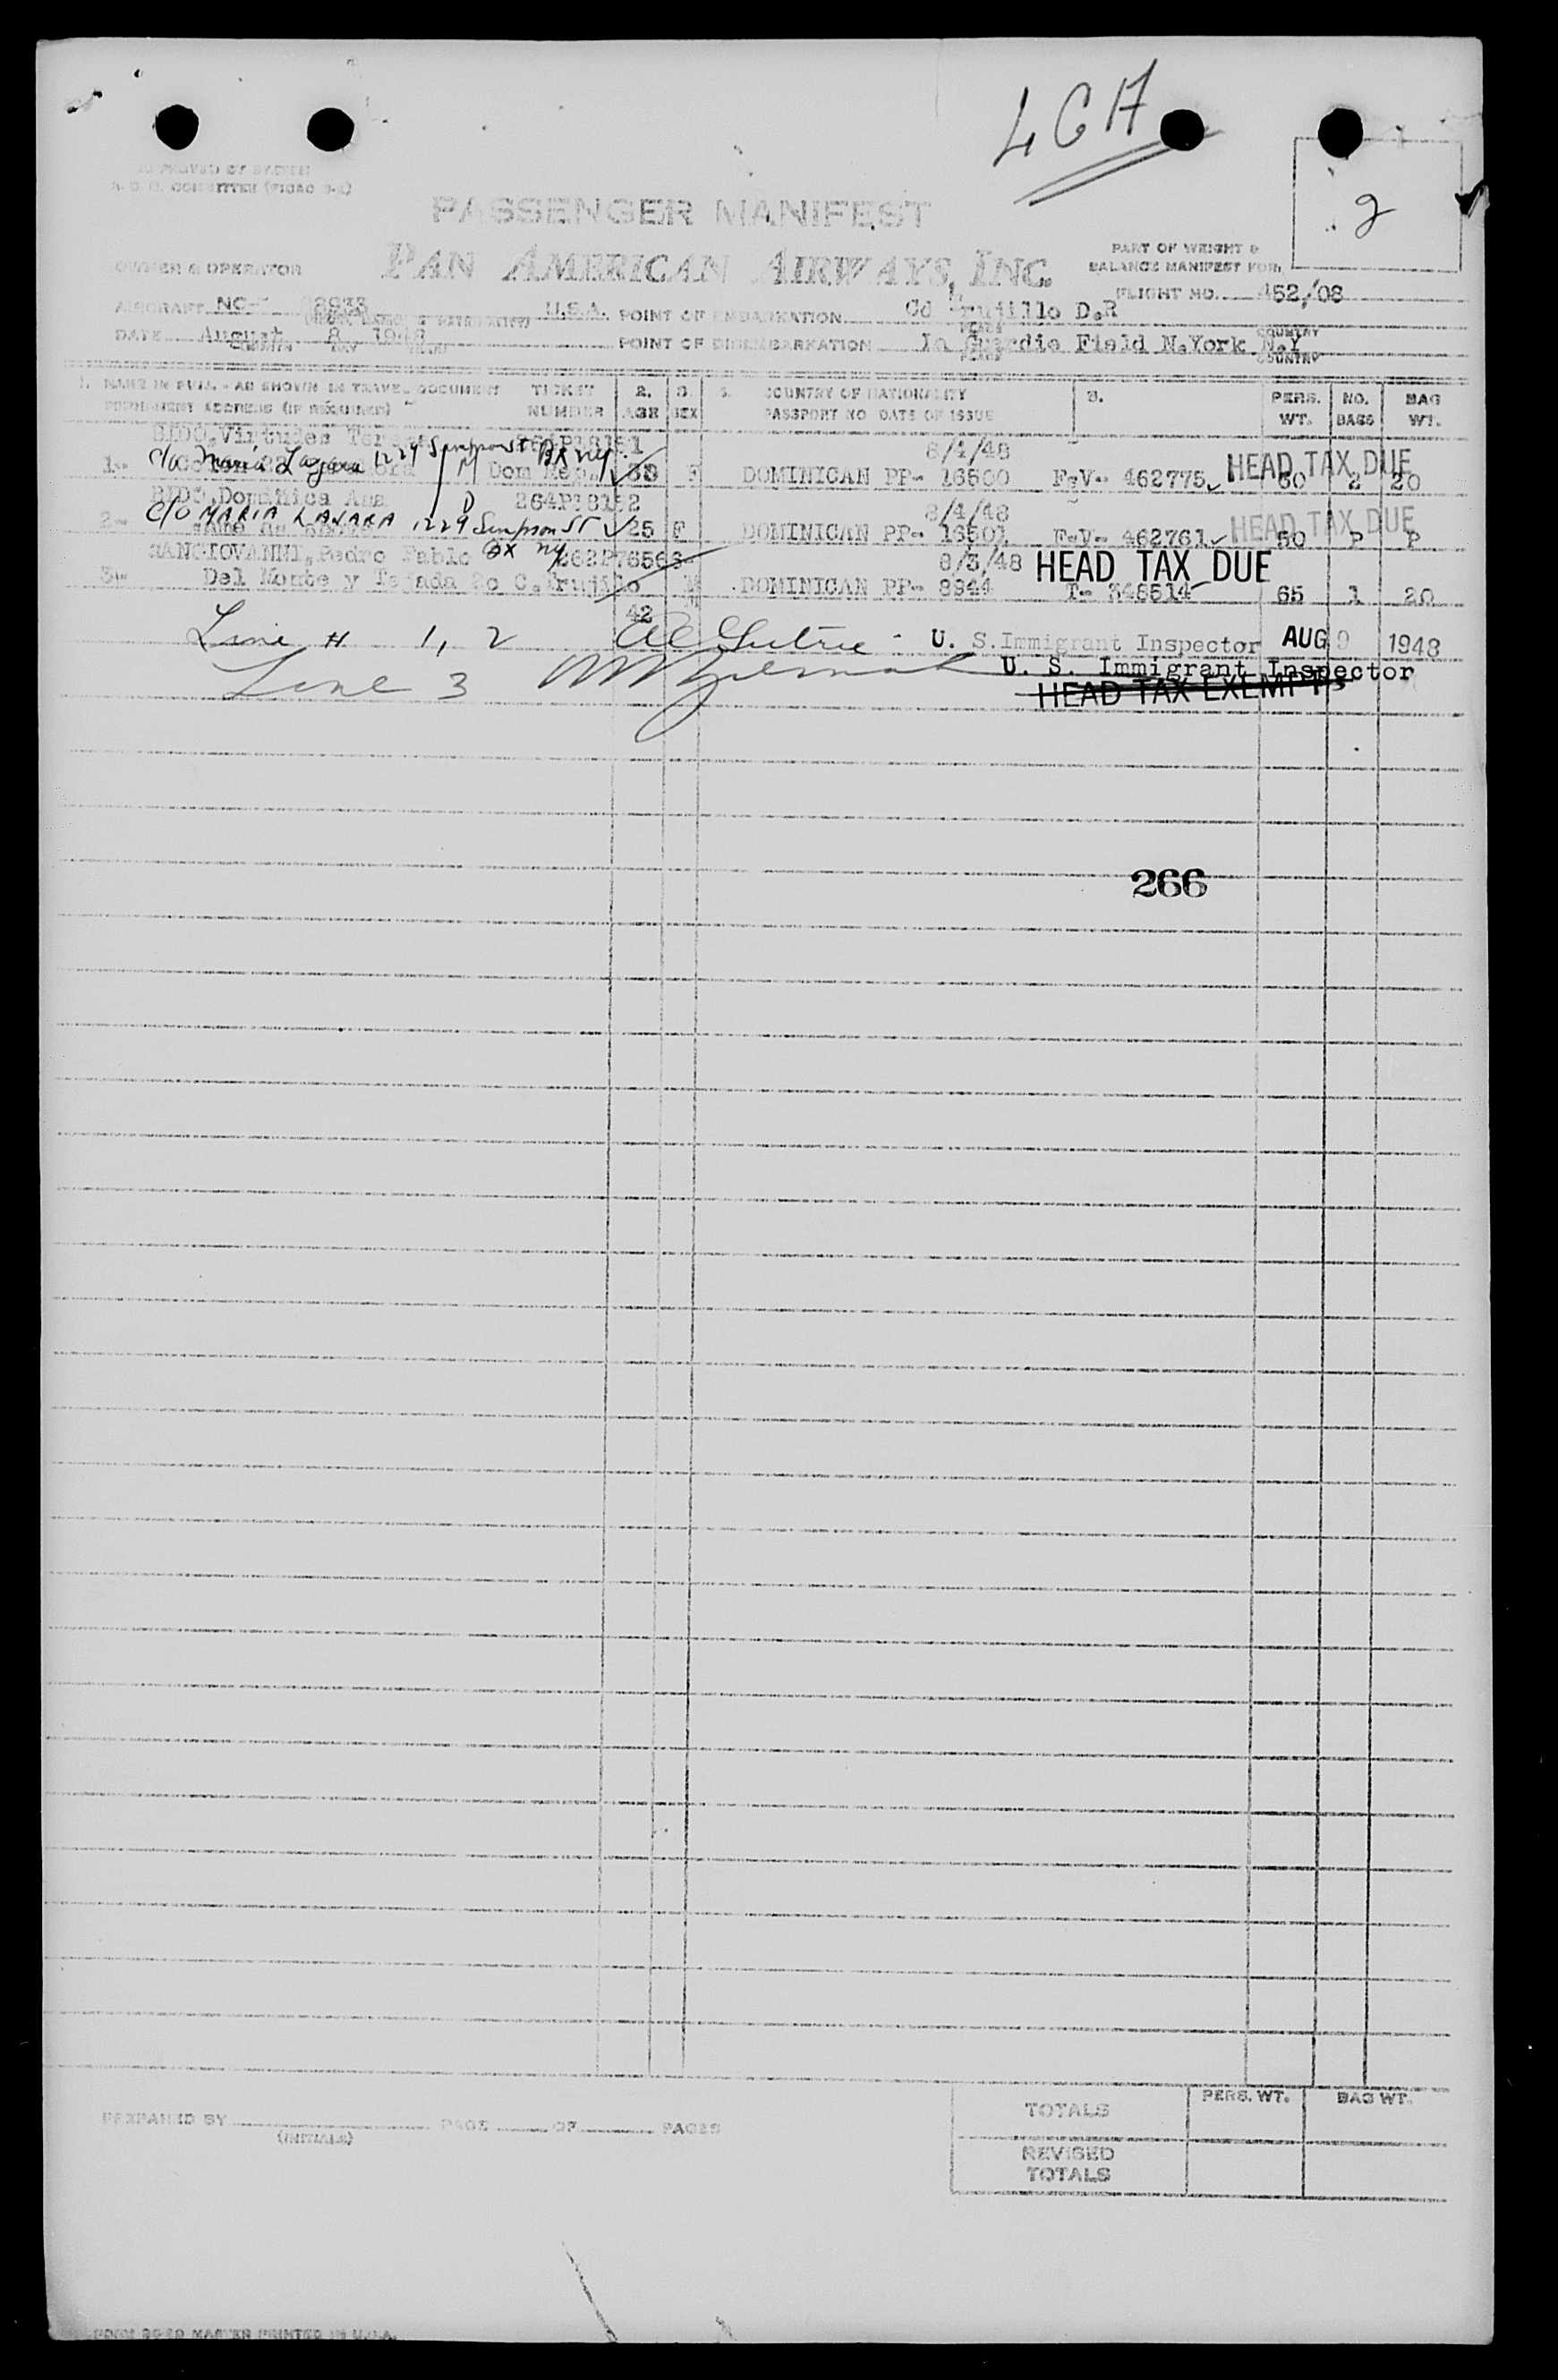 LGA
APPROVED BY
COMMITTEE
2
PASSENGER MANIFEST
PAN AMERICAN AIRWAYS, INC.
PART OF WEIGHT &
BALANCE MANIFEST FOR
OWNER & OPERATOR
FLIGHT NO. 452/08
AIRCRAFT NC- 88933 U.S.A. POINT OF EMBARKATION Cd Trujillo D.R
DATE August 8 1948 POINT OF DISEMBARKATION La Guardia Field N.York N.Y
MONTH DAY YEAR PLACE COUNTRY
1. NAME IN FULL - AS SHOWN IN TRAVEL DOCUMENT TICKET 2. 3. 4. COUNTRY OF NATIONALITY 5. PERS. NO. BAG
PERMANENT ADDRESS (IF REQUIRED) NUMBER AGE SEX PASSPORT NO DATE OF ISSUE WT. BAGS WT.
BIDO, Virtudes 8/4/48
c/o Maria Lazara 1229 Simpson St BX NY
1- Dom Rep. F DOMINICAN PP- 16500 F-V- 462775 HEAD TAX DUE 60 2 20
BIDO, Domanica Ana 264P18182 8/4/48
c/o MARIA LAJARA 1229 Simpson St
2- same as above 25 F DOMINICAN PP- 16501 F-V- 462761 HEAD TAX DUE 50 P P
BX NY
SANGIOVANNI, Pedro Pablo 262P76566 8/3/48 HEAD TAX DUE
3- Del Monte y Tejada 2c C. Trujillo M DOMINICAN PP- 8944 T- 348514 65 1 20
42
Line # 1, 2 U. S. Immigrant Inspector AUG 9 1948
Line 3 U. S. Immigrant Inspector
HEAD TAX EXEMPT
266
PREPARED BY PAGE OF PAGES
(INITIALS)
TOTALS PERS. WT. BAG WT.
REVISED
TOTALS
MASTER PRINTED IN U.S.A.